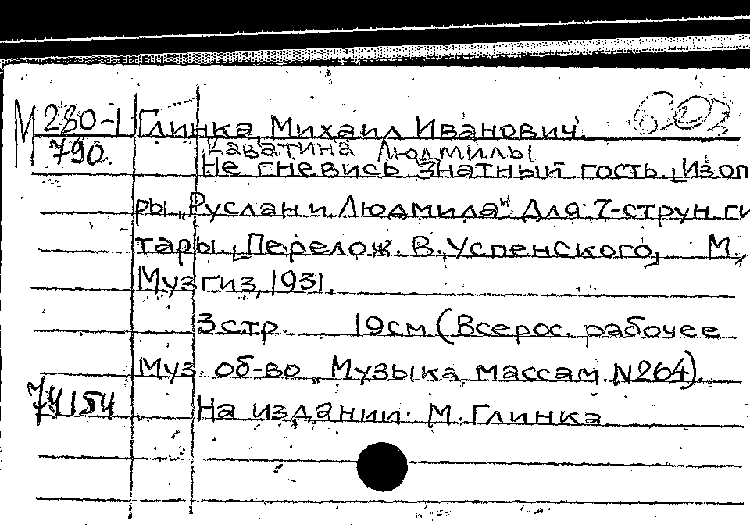 М 280-1 Глинка, Михаил Иванович.
790. Каватина Людмилы
Не гневись знатный гость. Из оп
ры „Руслан и Людмила" Для 7-струн ги
тары. Перелож. В. Успенского, М,
Музгиз, 1931.
3 стр. 19 см (Всерос. рабочее
Муз. об-во „Музыка массам N264).
74154 На издании: М. Глинка